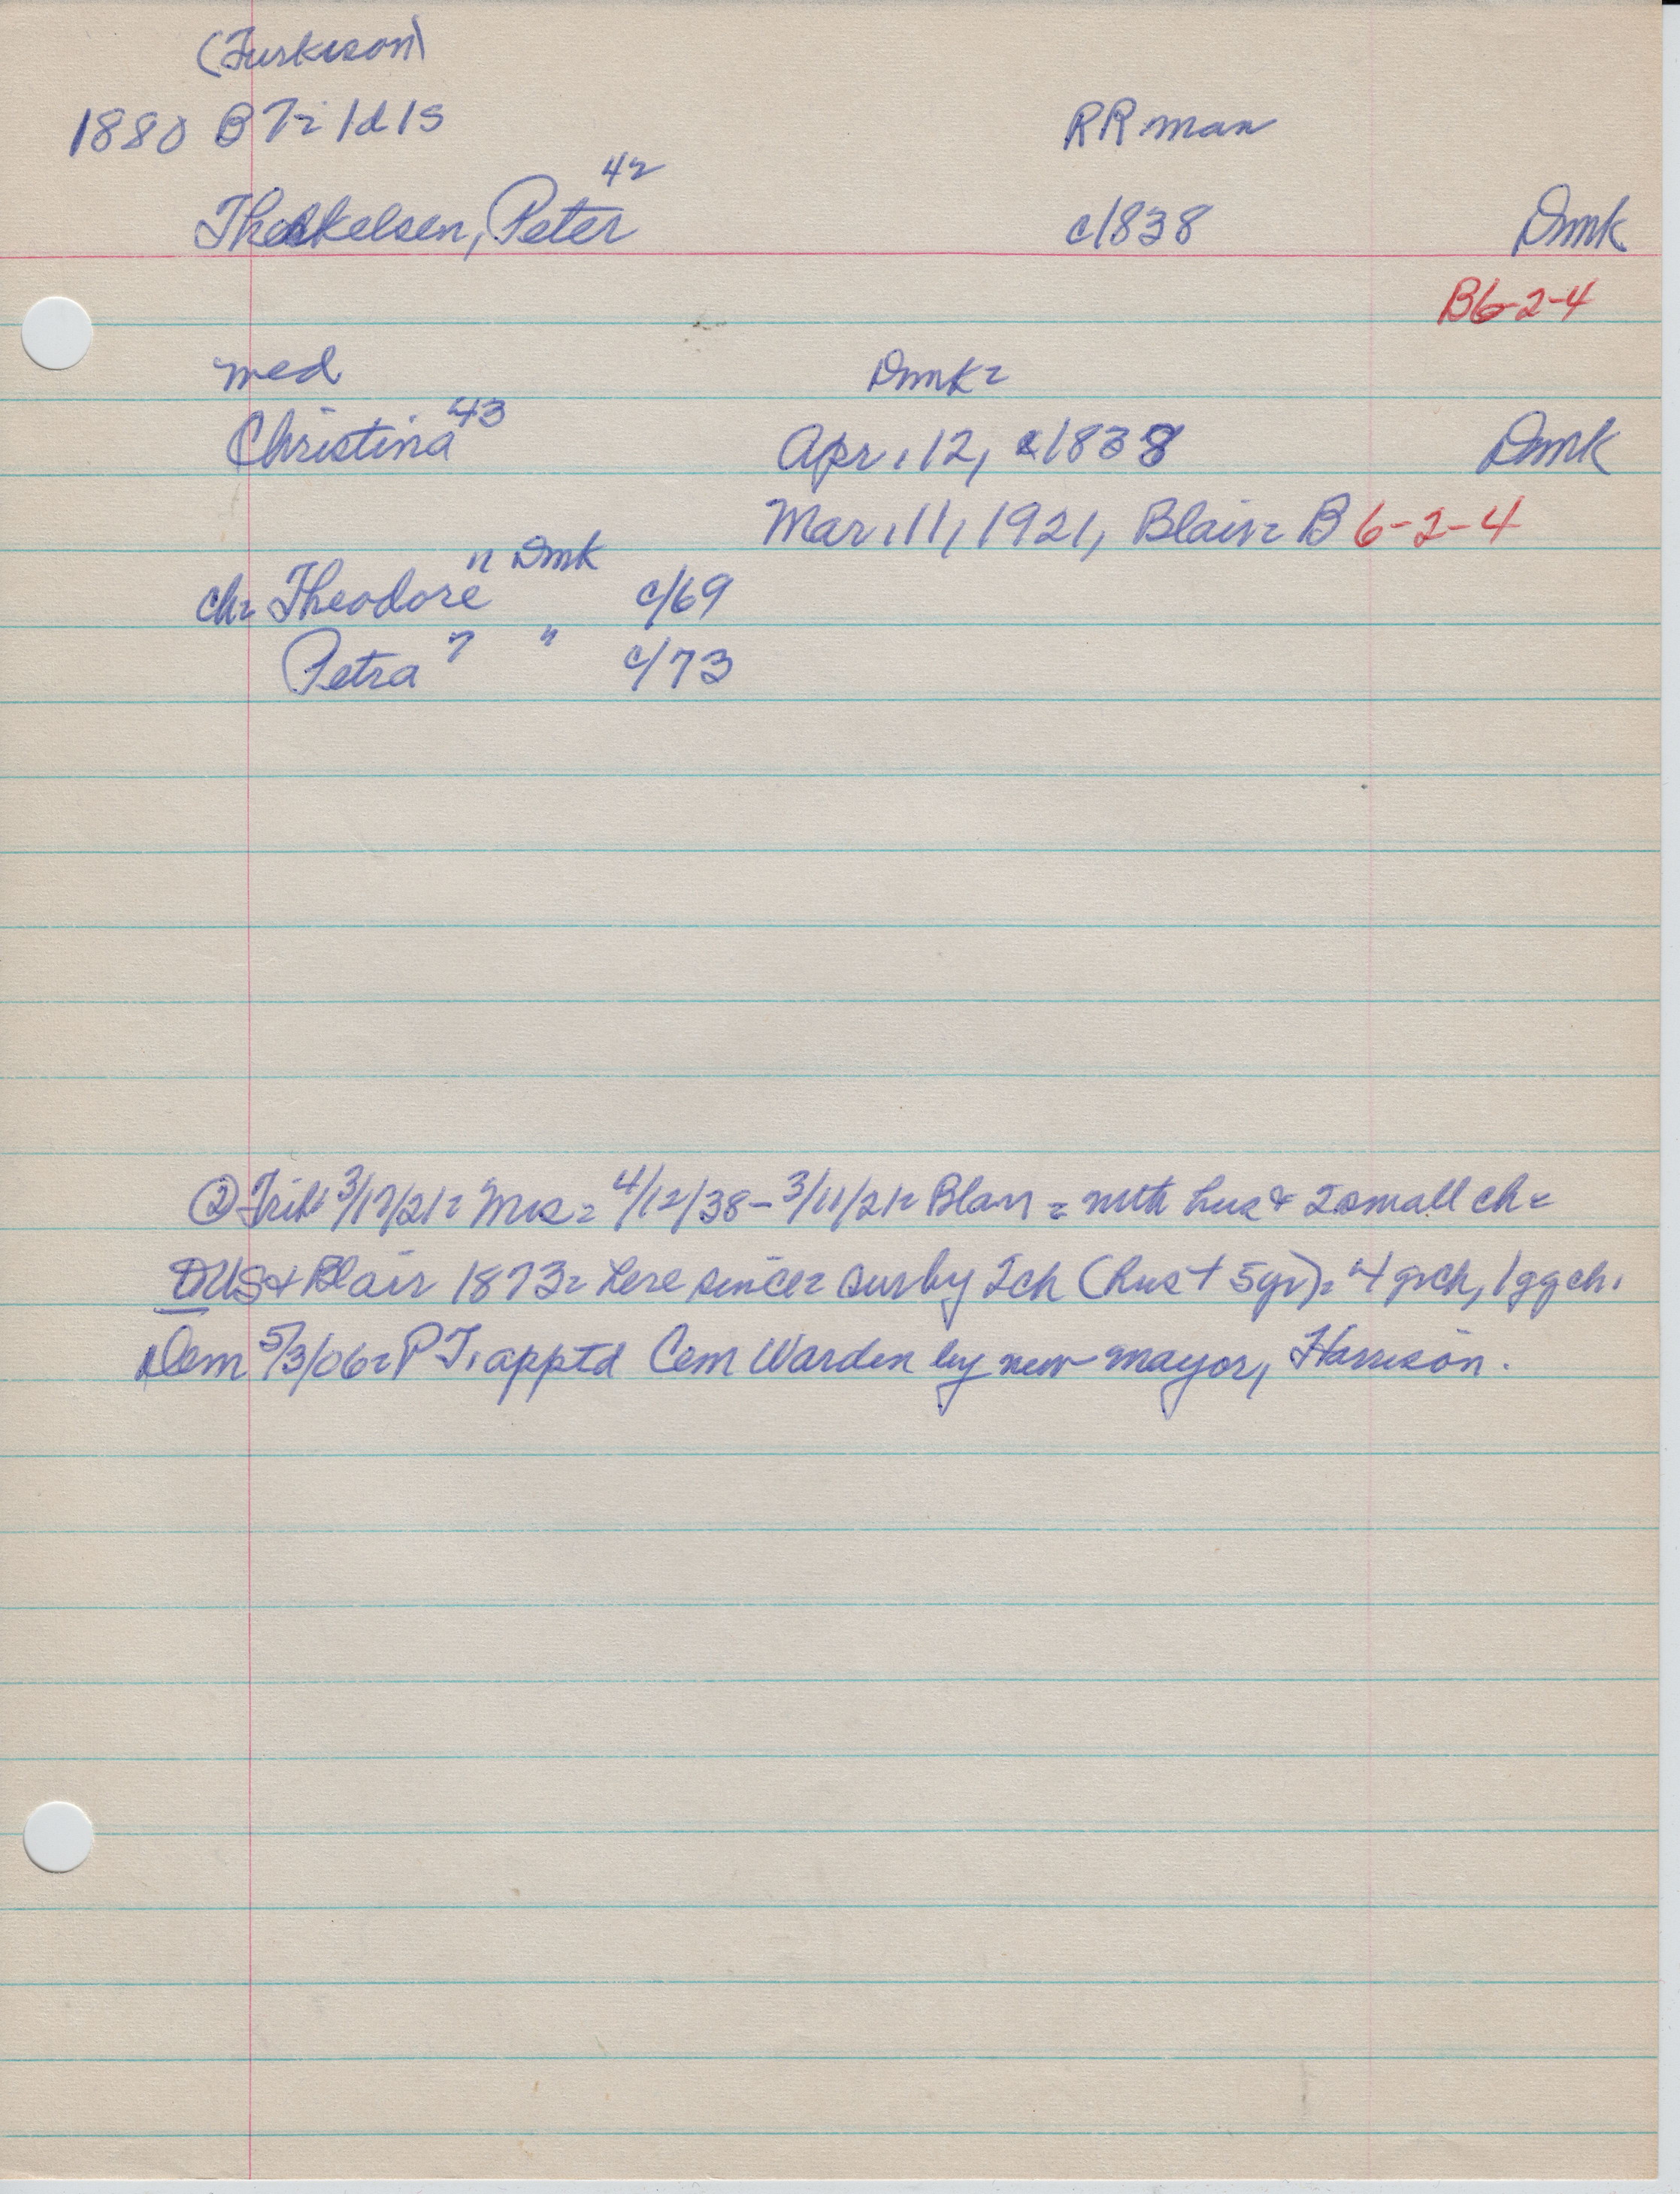 (Turkison)
1880 B Tr 1d 1s RR man
Therkelsen, Peter 42 c1838 Dmk
B6-2-4
med Dmk=
Christina 43 Apr. 12, c1838 Dmk
Mar. 11, 1921, Blair= B 6-2-4
ch= Theodore 11 Dmk c/69
Petra 7 " c/73
② Trib 3/17/21= Mrs= 4/12/38-3/11/21= Blair = with hus & 2 small ch=
DUS & Blair 1873= here since= sur by 2ch (hus + 5yr)= 4 grch, 1 ggch.
Dem 5/3/06= P T. apptd Cem Warden by new mayor, Harrison.